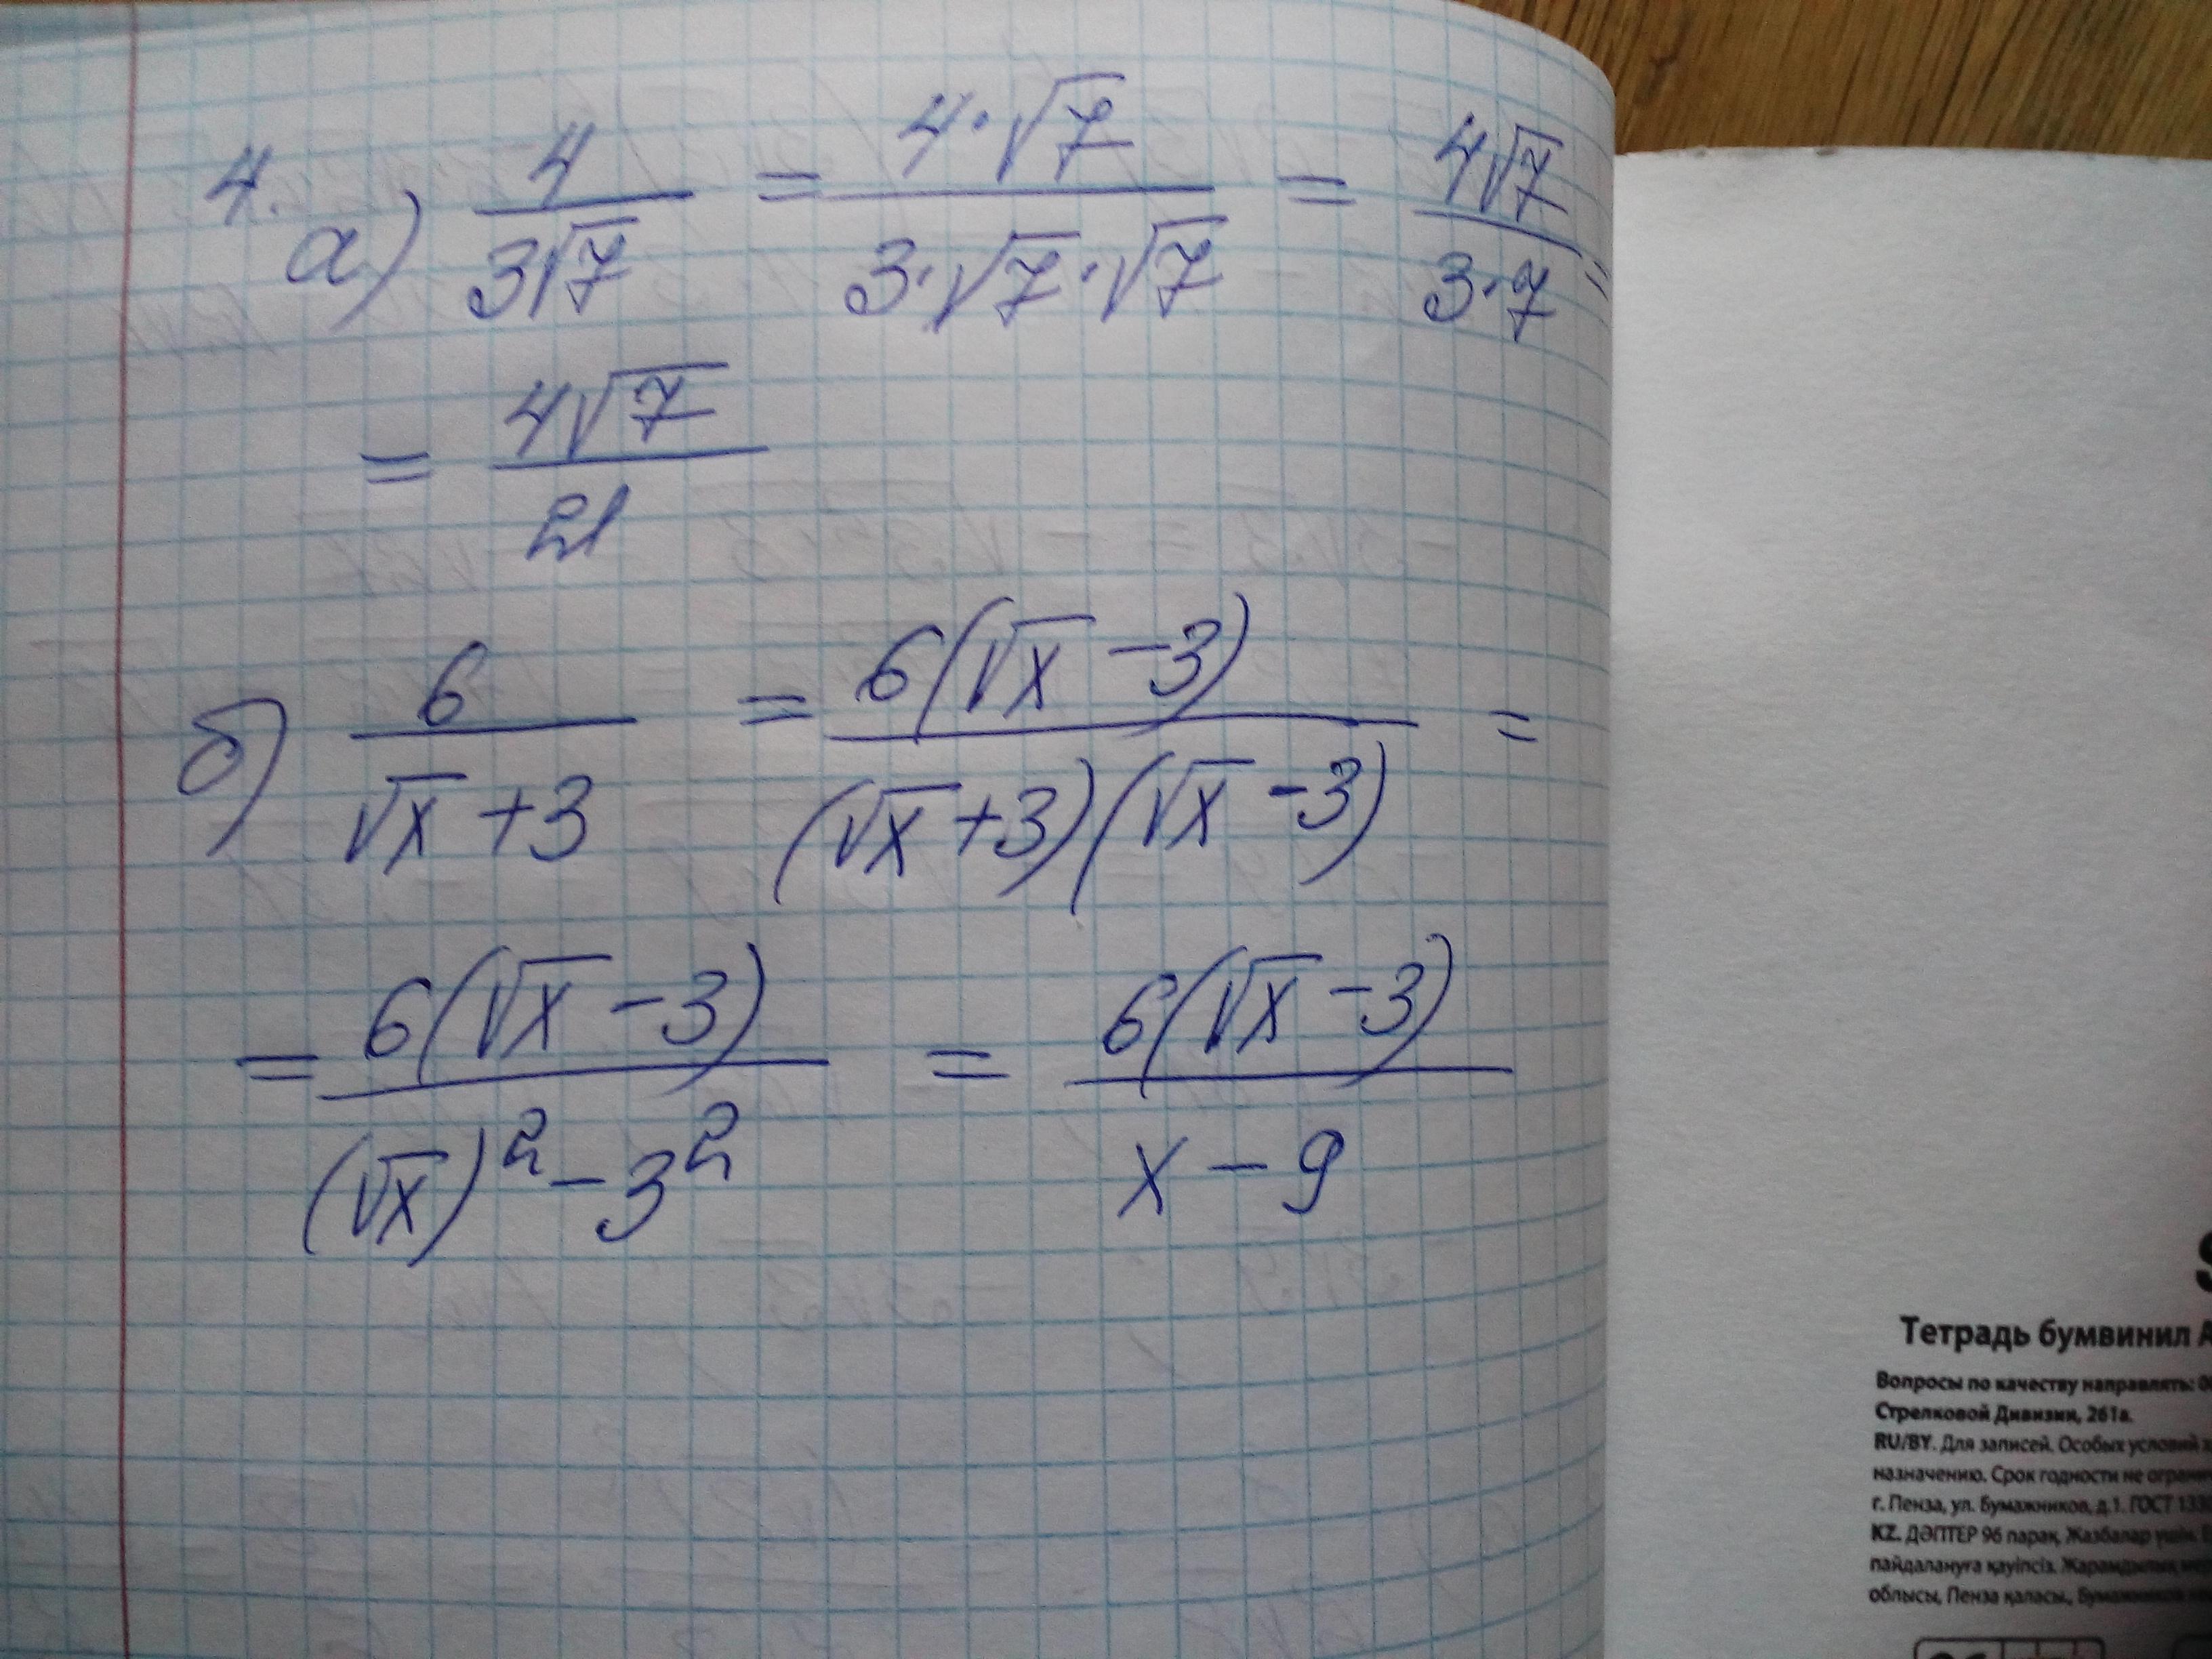 4. а) 4/(3√7) = (4·√7)/(3·√7·√7) = 4√7/(3·7) =
= 4√7/21
б) 6/(√x +3) = 6(√x -3)/((√x +3)(√x -3)) =
= 6(√x -3)/((√x)² - 3²) = 6(√x -3)/(x - 9)
Тетрадь бумвинил
Вопросы по качеству направлять:
Стрелковой Дивизии, 261а.
RU/BY. Для записей. Особых условий
назначению. Срок годности не
г. Пенза, ул. Бумажников, д.1. ГОСТ
KZ. ДӘПТЕР 96 парақ. Жазбалар үшін.
пайдалануға қауіпсіз. Жарамдылық
облысы, Пенза қаласы,